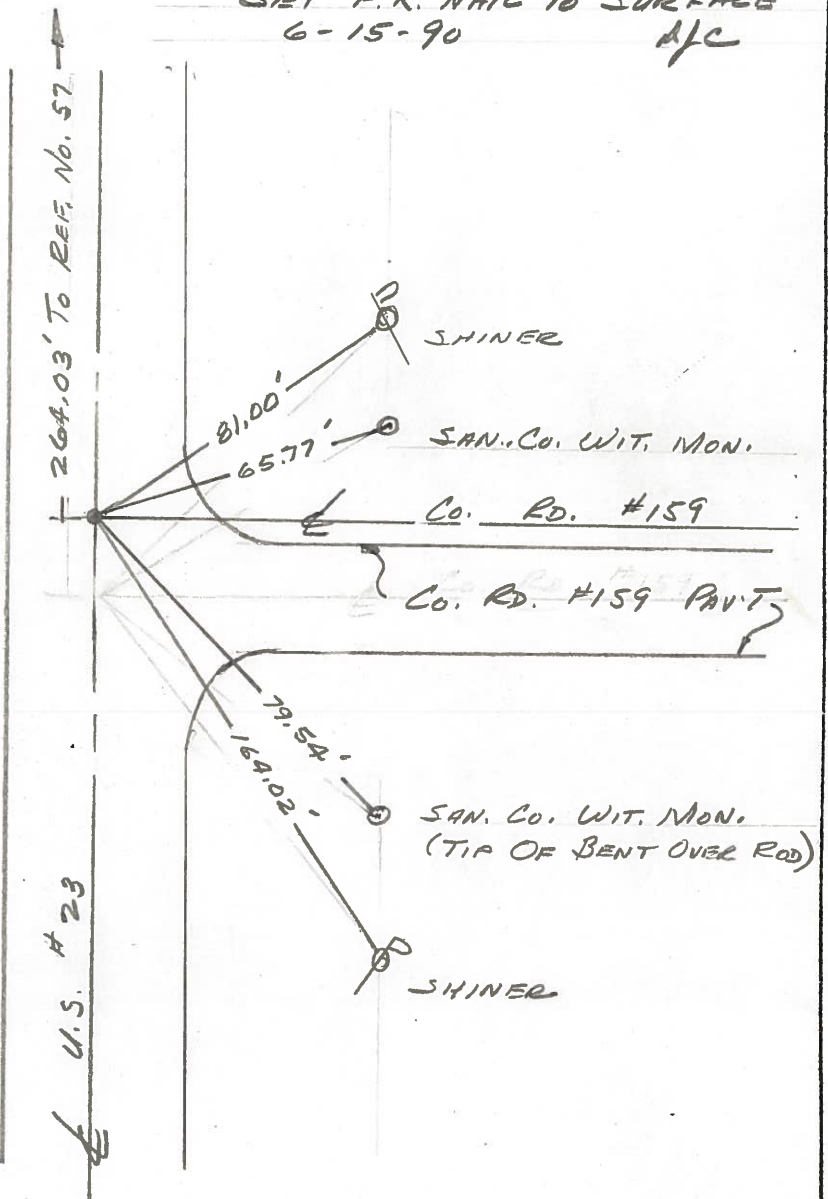 SET P.K. NAIL TO SURFACE
6-15-90
264.03' TO REF. NO. 57
SHINER
81.00'
SAN. CO. WIT. MON.
65.77'
CO. RD. #159
CO. RD. #159 PAV'T
79.54'
164.02'
SAN. CO. WIT. MON.
(TIP OF BENT OVER ROD)
SHINER
U.S. # 23